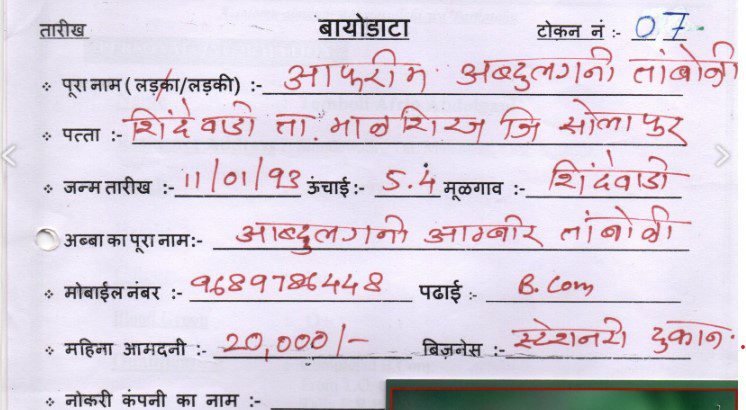 तारीख बायोडाटा टोकन नं :- 07
❖ पूरा नाम ( लड़का/लड़की) :- आफरीम अब्दुलगनी तांबोळी
❖ पत्ता :- शिंदेवाडी ता. माळशिरज जि सोलापुर
❖ जन्म तारीख :- 11/01/93 ऊंचाई :- 5.4 मूळगाव :- शिंदेवाडी
अब्बा का पूरा नाम:- आब्दुलगनी तांबोळी
❖ मोबाईल नंबर :- 9689786448 पढाई :- B.Com
❖ महिना आमदनी :- 20,000/- बिज़नेस :- स्टेशनरी दुकान.
❖ नोकरी कंपनी का नाम :-